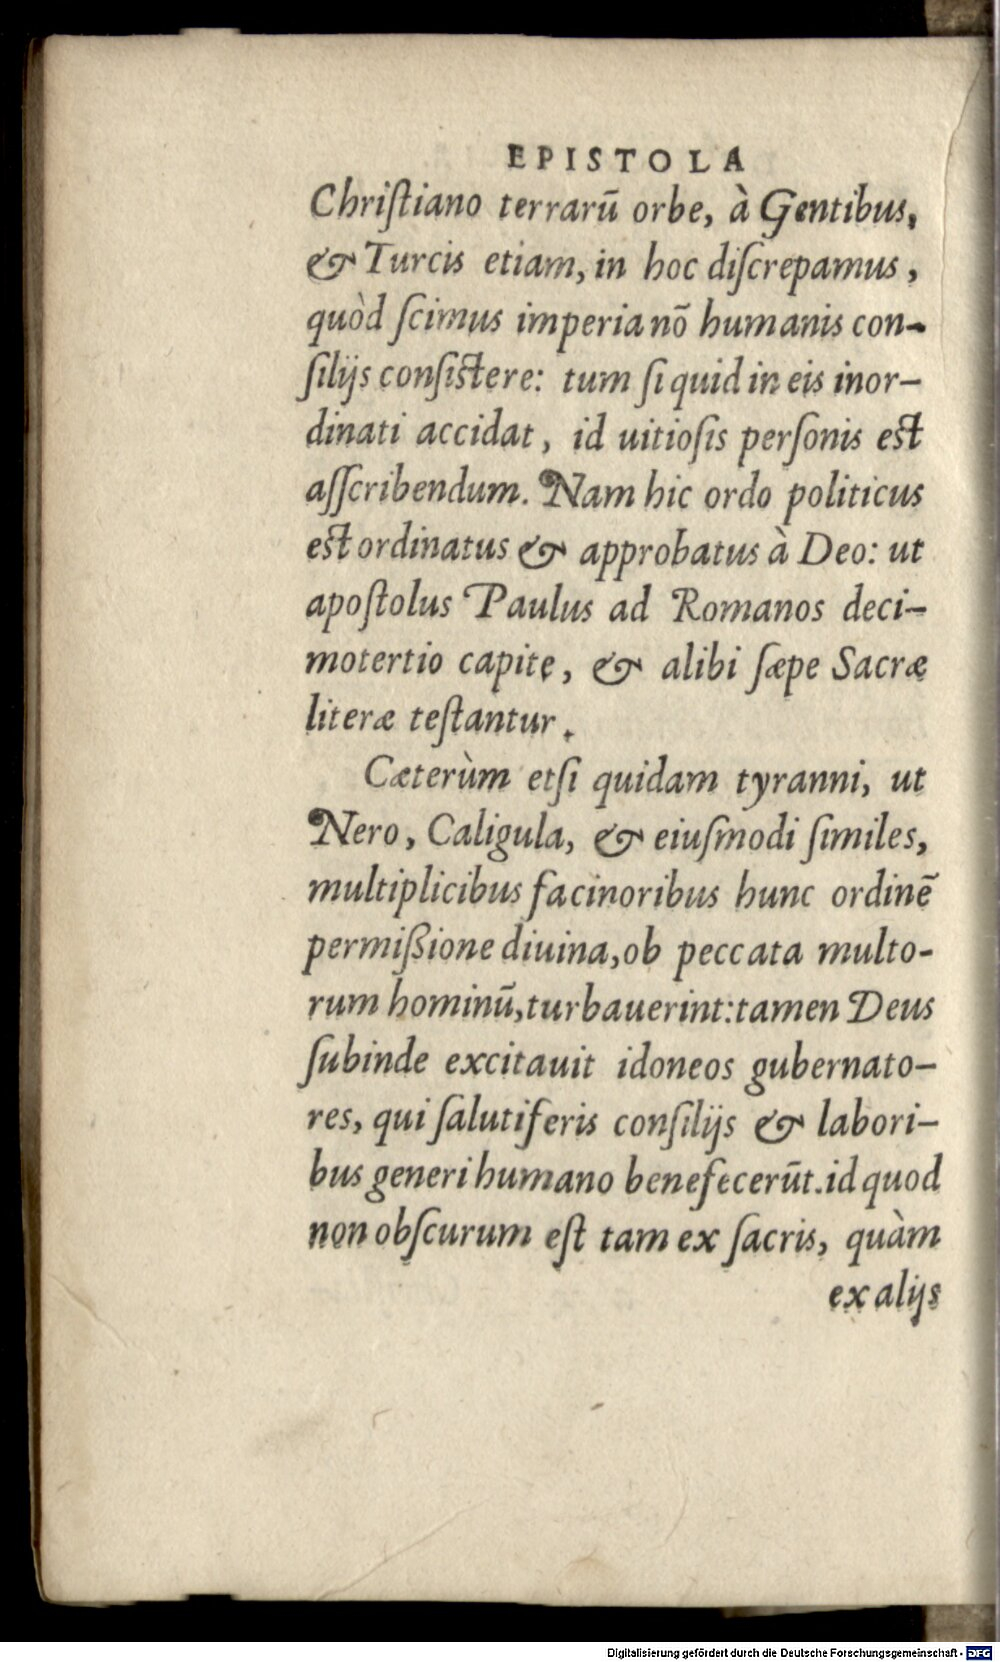 EPISTOLA
Chriſtiano terrarū orbe, à Gentibus,
& Turcis etiam, in hoc diſcrepamus,
quòd ſcimus imperia nō humanis con-
ſilijs conſistere: tum ſi quid in eis inor-
dinati accidat, id uitioſis perſonis est
aſſcribendum. Nam hic ordo politicus
est ordinatus & approbatus à Deo: ut
apoſtolus Paulus ad Romanos deci-
motertio capite, & alibi ſæpe Sacræ
literæ teſtantur.
Cæterùm etſi quidam tyranni, ut
Nero, Caligula, & eiuſmodi ſimiles,
multiplicibus facinoribus hunc ordinē
permißione diuina, ob peccata multo-
rum hominū, turbauerint: tamen Deus
ſubinde excitauit idoneos gubernato-
res, qui ſalutiferis conſilijs & labori-
bus generi humano benefecerūt. id quod
non obſcurum eſt tam ex ſacris, quàm
ex alijs
Digitalisierung gefördert durch die Deutsche Forschungsgemeinschaft - DFG